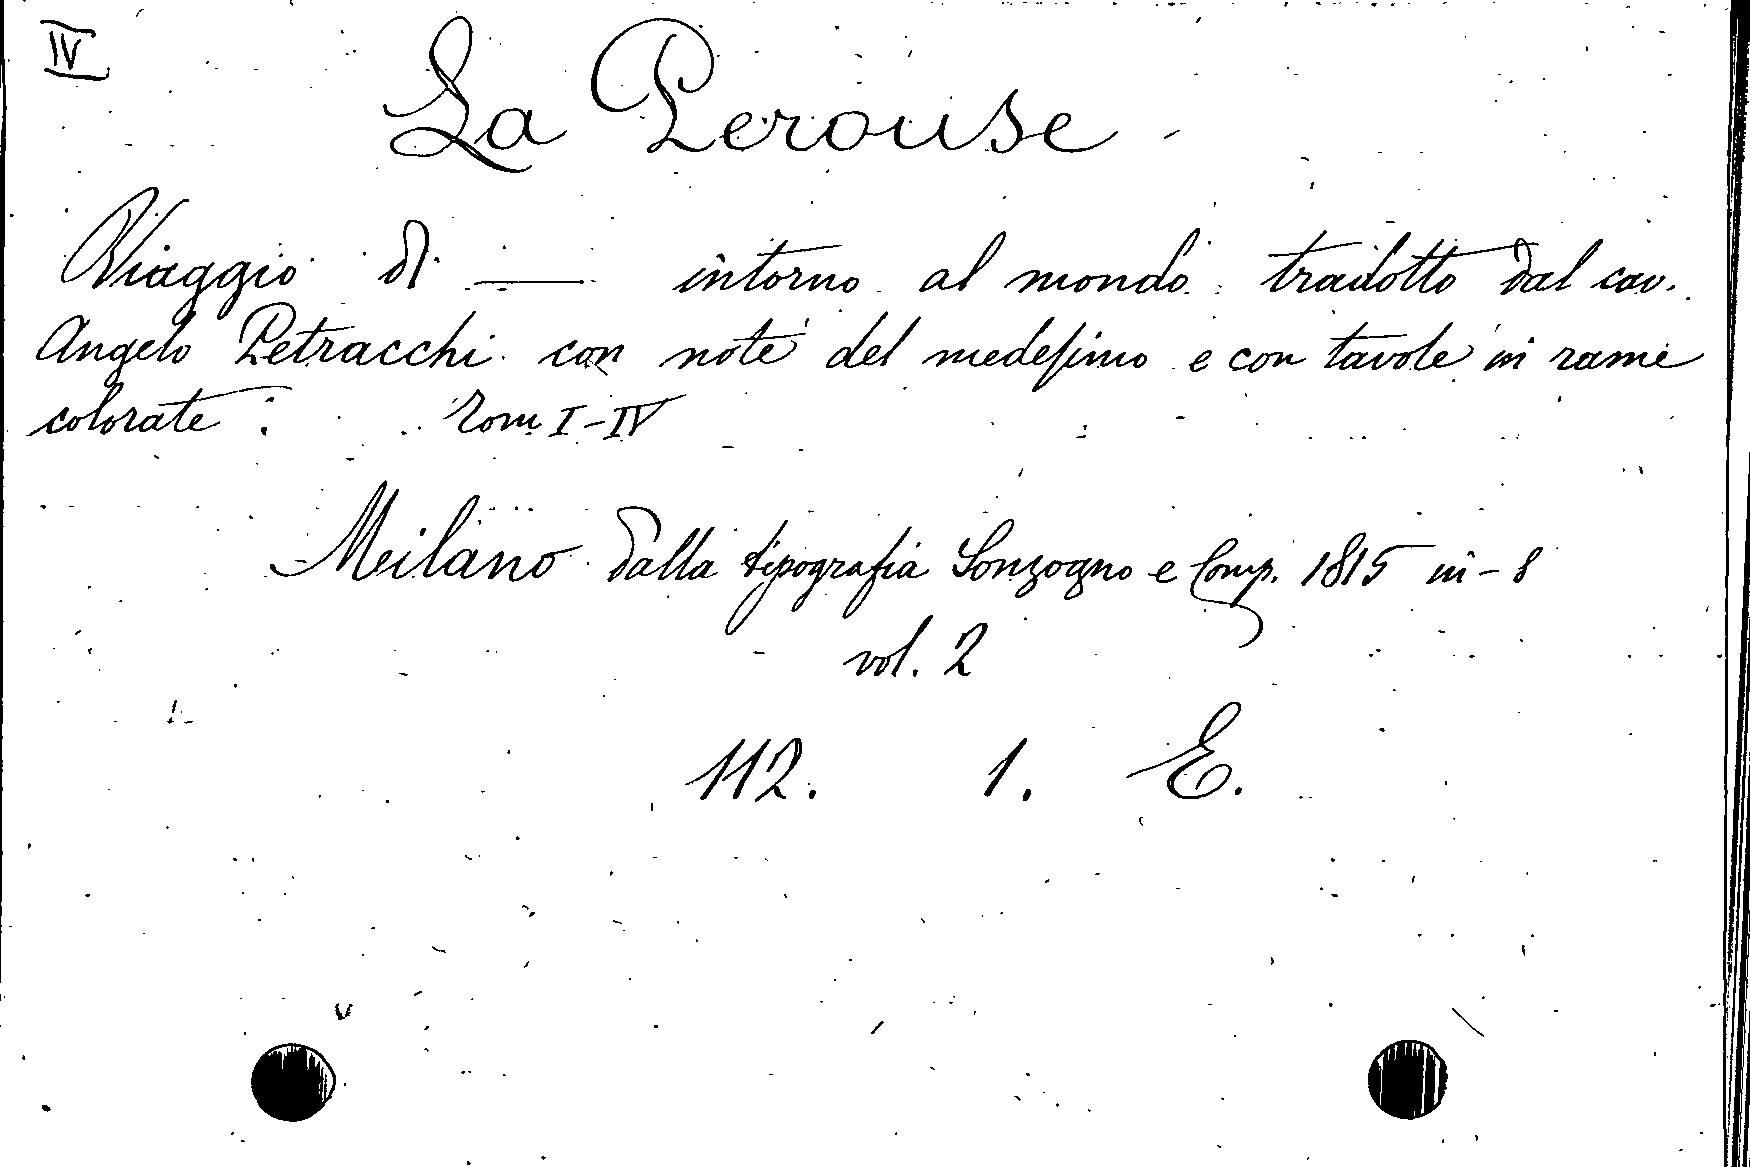 IV
La Perouse
Viaggio di — intorno al mondo tradotto dal cav.
Angelo Petracchi con note del medesimo e con tavole in rame
colorate: Tom I-IV
Milano dalla tipografia Sonzogno e Comp. 1815 in-8
vol. 2
112. 1. E.